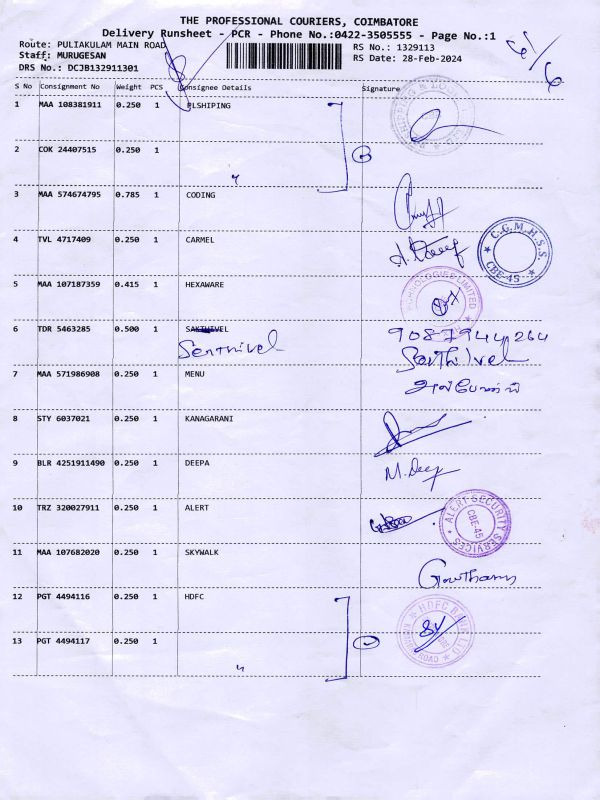 THE PROFESSIONAL COURIERS, COIMBATORE
Delivery Runsheet - PCR - Phone No.:0422-3505555 - Page No.:1
Route: PULIAKULAM MAIN ROAD RS No.: 1329113
Staff: MURUGESAN RS Date: 28-Feb-2024
DRS No.: DCJB132911301
S No Consignment No Weight PCS Consignee Details Signature
1 MAA 108381911 0.250 1 PLSHIPING
2 COK 24407515 0.250 1 "
3 MAA 574674795 0.785 1 CODING
4 TVL 4717409 0.250 1 CARMEL
C.G.M.H.S.S. CBE-45
5 MAA 107187359 0.415 1 HEXAWARE
TECHNOLOGIES LIMITED
6 TDR 5463285 0.500 1 SAKTHIVEL 9087944264
Senthivel Senthilvel
7 MAA 571986908 0.250 1 MENU
8 STY 6037021 0.250 1 KANAGARANI
9 BLR 4251911490 0.250 1 DEEPA M.Deep
10 TRZ 320027911 0.250 1 ALERT
ALERT SECURITY SERVICES CBE-45
11 MAA 107682020 0.250 1 SKYWALK
Gowtham
12 PGT 4494116 0.250 1 HDFC
HDFC BANK LTD
13 PGT 4494117 0.250 1 "
ROAD